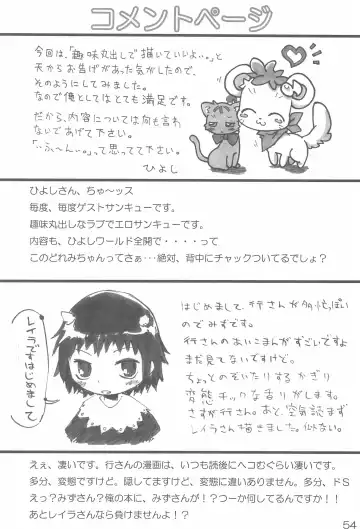 コメントページ
今回は、「趣味丸出しで描いていいよぃ。」と
天からお告げがあった気がしたので、
そのようにしてみました。
なので俺としてはとても満足です。
だから、内容については何も言わ
ないであげて下さい。
「…ふ〜ん…。」って思ってて下さい。
ひよし
ひよしさん、ちゃ〜ッス
毎度、毎度ゲストサンキューです。
趣味丸出しなラブでエロサンキューです。
内容も、ひよしワールド全開で・・・・って
このどれみちゃんってさぁ…絶対、背中にチャックついてるでしょ?
レイラです
はじめまして
はじめまして、行さんが多忙っぽい
のでみずです。
行さんのあいこまんがすごいですよ
まだ見てないですけど。
ちょっとのぞいたりするかぎり
変態チックな香りがします。
さすが行さん。あと、空気読まず
レイラさん描きました。似ない。
えぇ、凄いです。行さんの漫画は、いつも読後にヘコむぐらい凄いです。
多分、変態ですけど。隠してますけど、変態に違いありません。多分、ドS
えっ?みずさん?俺の本に、みずさんが!?つーか何してるんですか!!
あとレイラさんなら負けませんよ!?
54